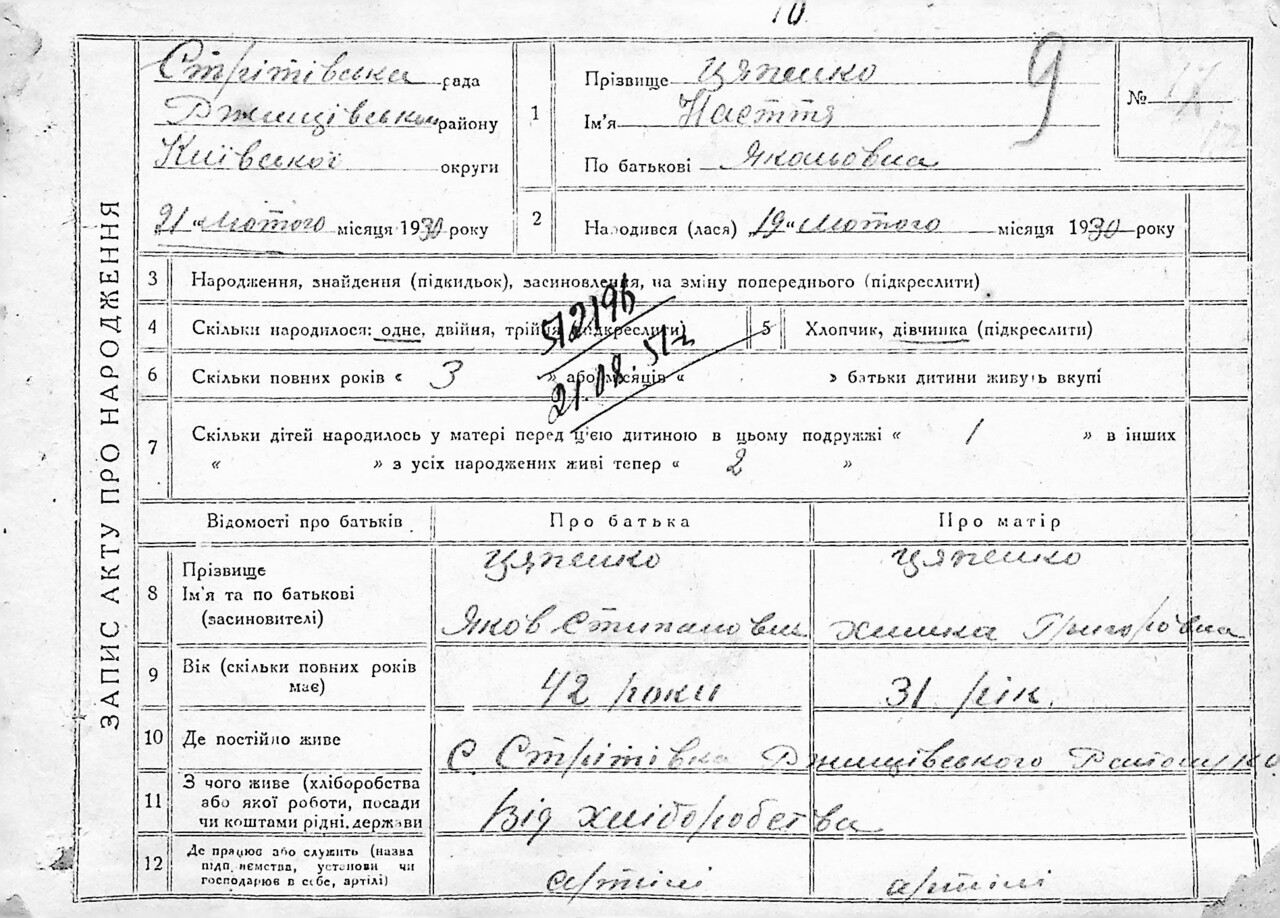 10
ЗАПИС АКТУ ПРО НАРОДЖЕННЯ
Стрітівська рада
Ржищівського району
Київської округи
„21“ Лютого місяця 1930 року
1
Прізвище Цяпенко
Ім'я Настя
По батькові Яковловна
9
№ 17
12
2
Народився (лася) „19“ Лютого місяця 1930 року
3 Народження, знайдення (підкидьок), засиновлення, на зміну попереднього (підкреслити)
4 Скільки народилося: одне, двійня, трійня (підкреслити)
5 Хлопчик, дівчинка (підкреслити)
512196
21.08.51г
6 Скільки повних років « 3 » або місяців « » батьки дитини живуть вкупі
7 Скільки дітей народилось у матері перед ц'єю дитиною в цьому подружжі « 1 » в інших
« » з усіх народжених живі тепер « 2 »
Відомості про батьків Про батька Про матір
8 Прізвище
Ім'я та по батькові
(засновителі)
Цяпенко Цяпенко
Яков Стипанович Химка Григоровна
9 Вік (скільки повних років
має)
42 роки 31 рік.
10 Де постійно живе
с. Стрітівка Ржищівського Району КО
11 З чого живе (хліборобства
або якої роботи, посади
чи коштами рідні, держави
Від хліборобства
12 Де працює або служить (назва
підприємства, установи чи
господарює в себе, артілі)
артілі артілі